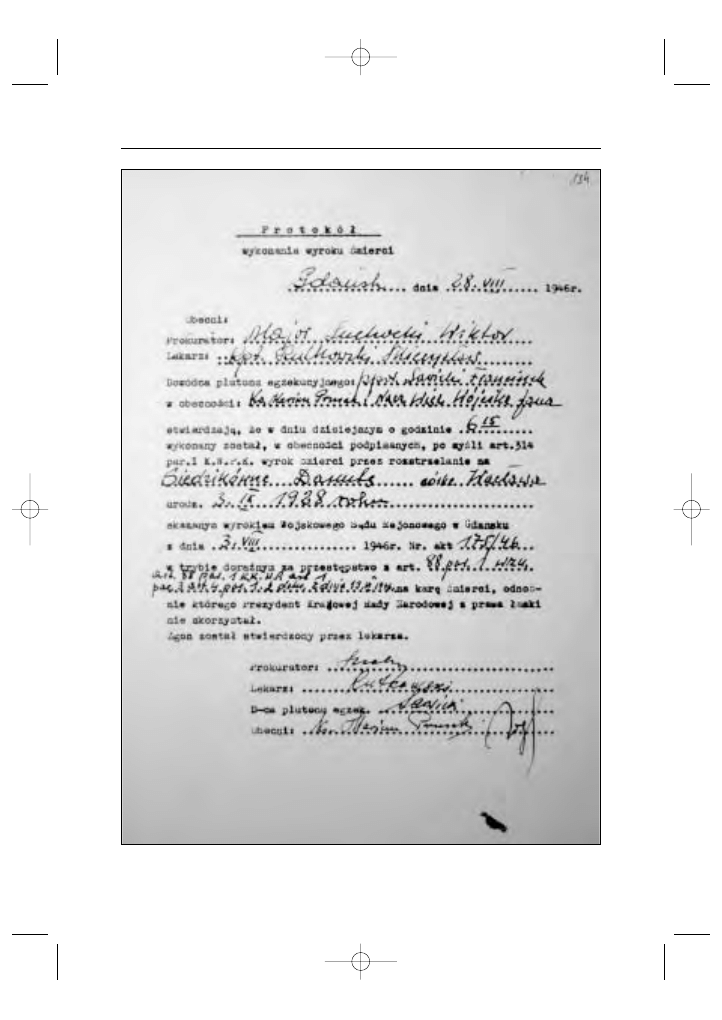 134
Protokół
wykonania wyroku śmierci
Gdańsk dnia 28.VIII 1946r.
Obecni:
Prokurator: Major Suchocki Wiktor
Lekarz: kpt. Rutkowski Mieczysław
Dowódca plutonu egzekucyjnego: ppor. Sawicki Franciszek
w obecności: Ks. Marian Prusak i Nacz. Więz. Wójcika Jana
stwierdzają, że w dniu dzisiejszym o godzinie 6 15
wykonany został, w obecności podpisanych, po myśli art.314
par.1 K.W.P.K. wyrok śmierci przez rozstrzelanie na
Siedzikównę Danutę córkę Wacława
urodz. 3.IX 1928 roku
skazanym wyrokiem Wojskowego Sądu Rejonowego w Gdańsku
z dnia 3.VIII 1946r. Nr. akt 175/46
w trybie doraźnym za przestępstwo z art. 88 par. 1
na karę śmierci, odnoś-
nie którego Prezydent Krajowej Rady Narodowej z prawa łaski
nie skorzystał.
Zgon został stwierdzony przez lekarza.
Prokurator:
Lekarz: Rutkowski
D-ca plutonu egzek. Sawicki
Obecni: Ks. Marian Prusak